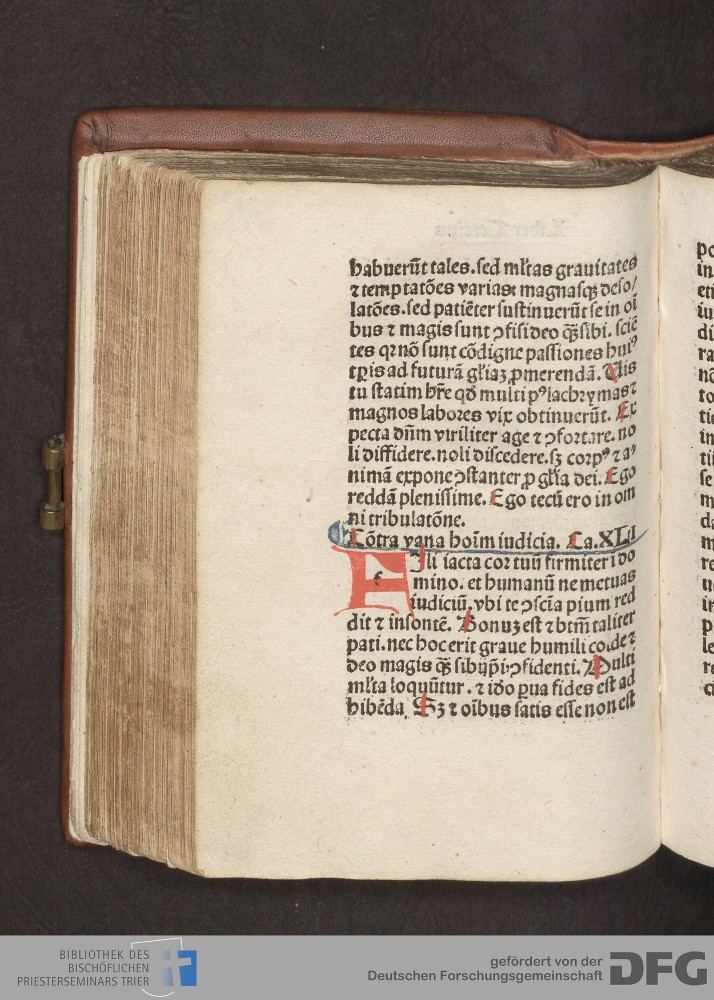 habuerūt tales. sed ml̄tas grauitates
⁊ temptatōes varias⁊ magnasqꝫ deso/
latōes. sed patiēter sustinuerūt se in oī
bus ⁊ magis sunt ꝯfisi deo qꝫ̄ sibi. sciē
tes qꝛ nō sunt cōdigne passiones hui⁹
tꝑis ad futurā gl̄iaꝫ ꝓmerendā. Uis
tu statim hr̄e qd̄ multi p⁹ lachrymas ⁊
magnos labores vix obtinuerūt. Ex
pecta dn̄m viriliter age ⁊ ꝯfortare. no
li diffidere. noli discedere. sꝫ corp⁹ ⁊ a⁹
nimā expone ꝯstanter ꝓ gl̄ia dei. Ego
reddā plenissime. Ego tecū ero in om
ni tribulatōne.
Cōtra vana hoīm iudicia. Ca. XLI
FIli iacta cor tuū firmiter ī do
mino. et humanū ne metuas
iudiciū. vbi te ꝯscīa pium red
dit ⁊ insontē. Bonuꝫ est ⁊ btm̄ taliter
pati. nec hoc erit graue humili corde ⁊
deo magis qꝫ̄ sibijpi ꝯfidenti. Multi
ml̄ta loquūtur. ⁊ iđo ꝑua fides est ad
hibēda. Sꝫ ⁊ oībus satis esse non est
BIBLIOTHEK DES
BISCHÖFLICHEN
PRIESTERSEMINARS TRIER
gefördert von der
Deutschen Forschungsgemeinschaft
DFG